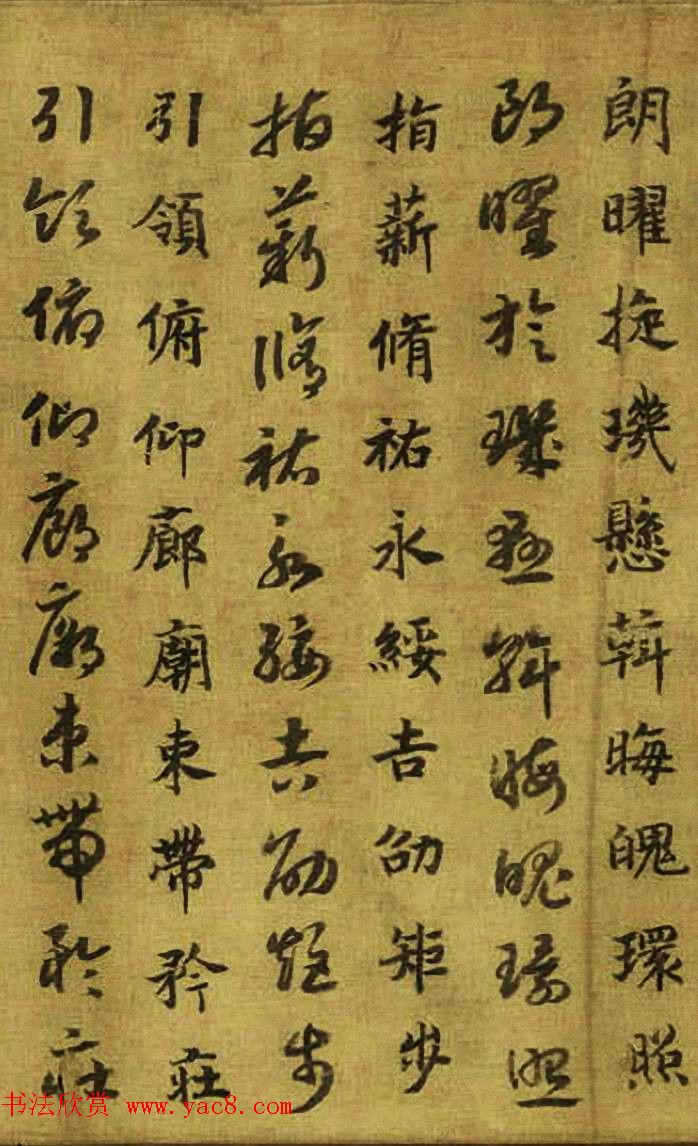 朗曜旋璣懸斡晦魄環照
朗曜旋璣懸斡晦魄環照
指薪脩祐永綏吉劭矩步
指薪脩祐永綏吉劭矩步
引領俯仰廊廟束帶矜莊
引領俯仰廊廟束帶矜莊
书法欣赏 www.yac8.com